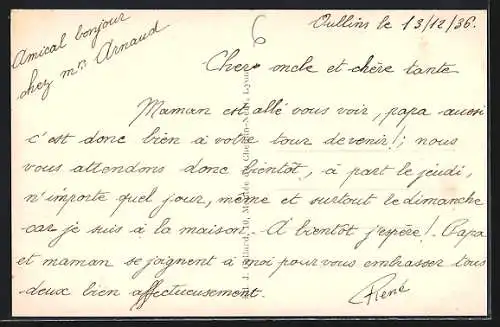 Amical bonjour
chez mme Arnaud
Oullins le 13/12/36.
6
Cher oncle et chère tante
Maman est allé vous voir, papa aussi
c'est donc bien à votre tour de venir!; nous
vous attendons donc bientôt, à part le jeudi,
n'importe quel jour, même et surtout le dimanche
car je suis à la maison. A bientôt j'espère! Papa
et maman se joignent à moi pour vous embrasser tous
deux bien affectueusement.
René